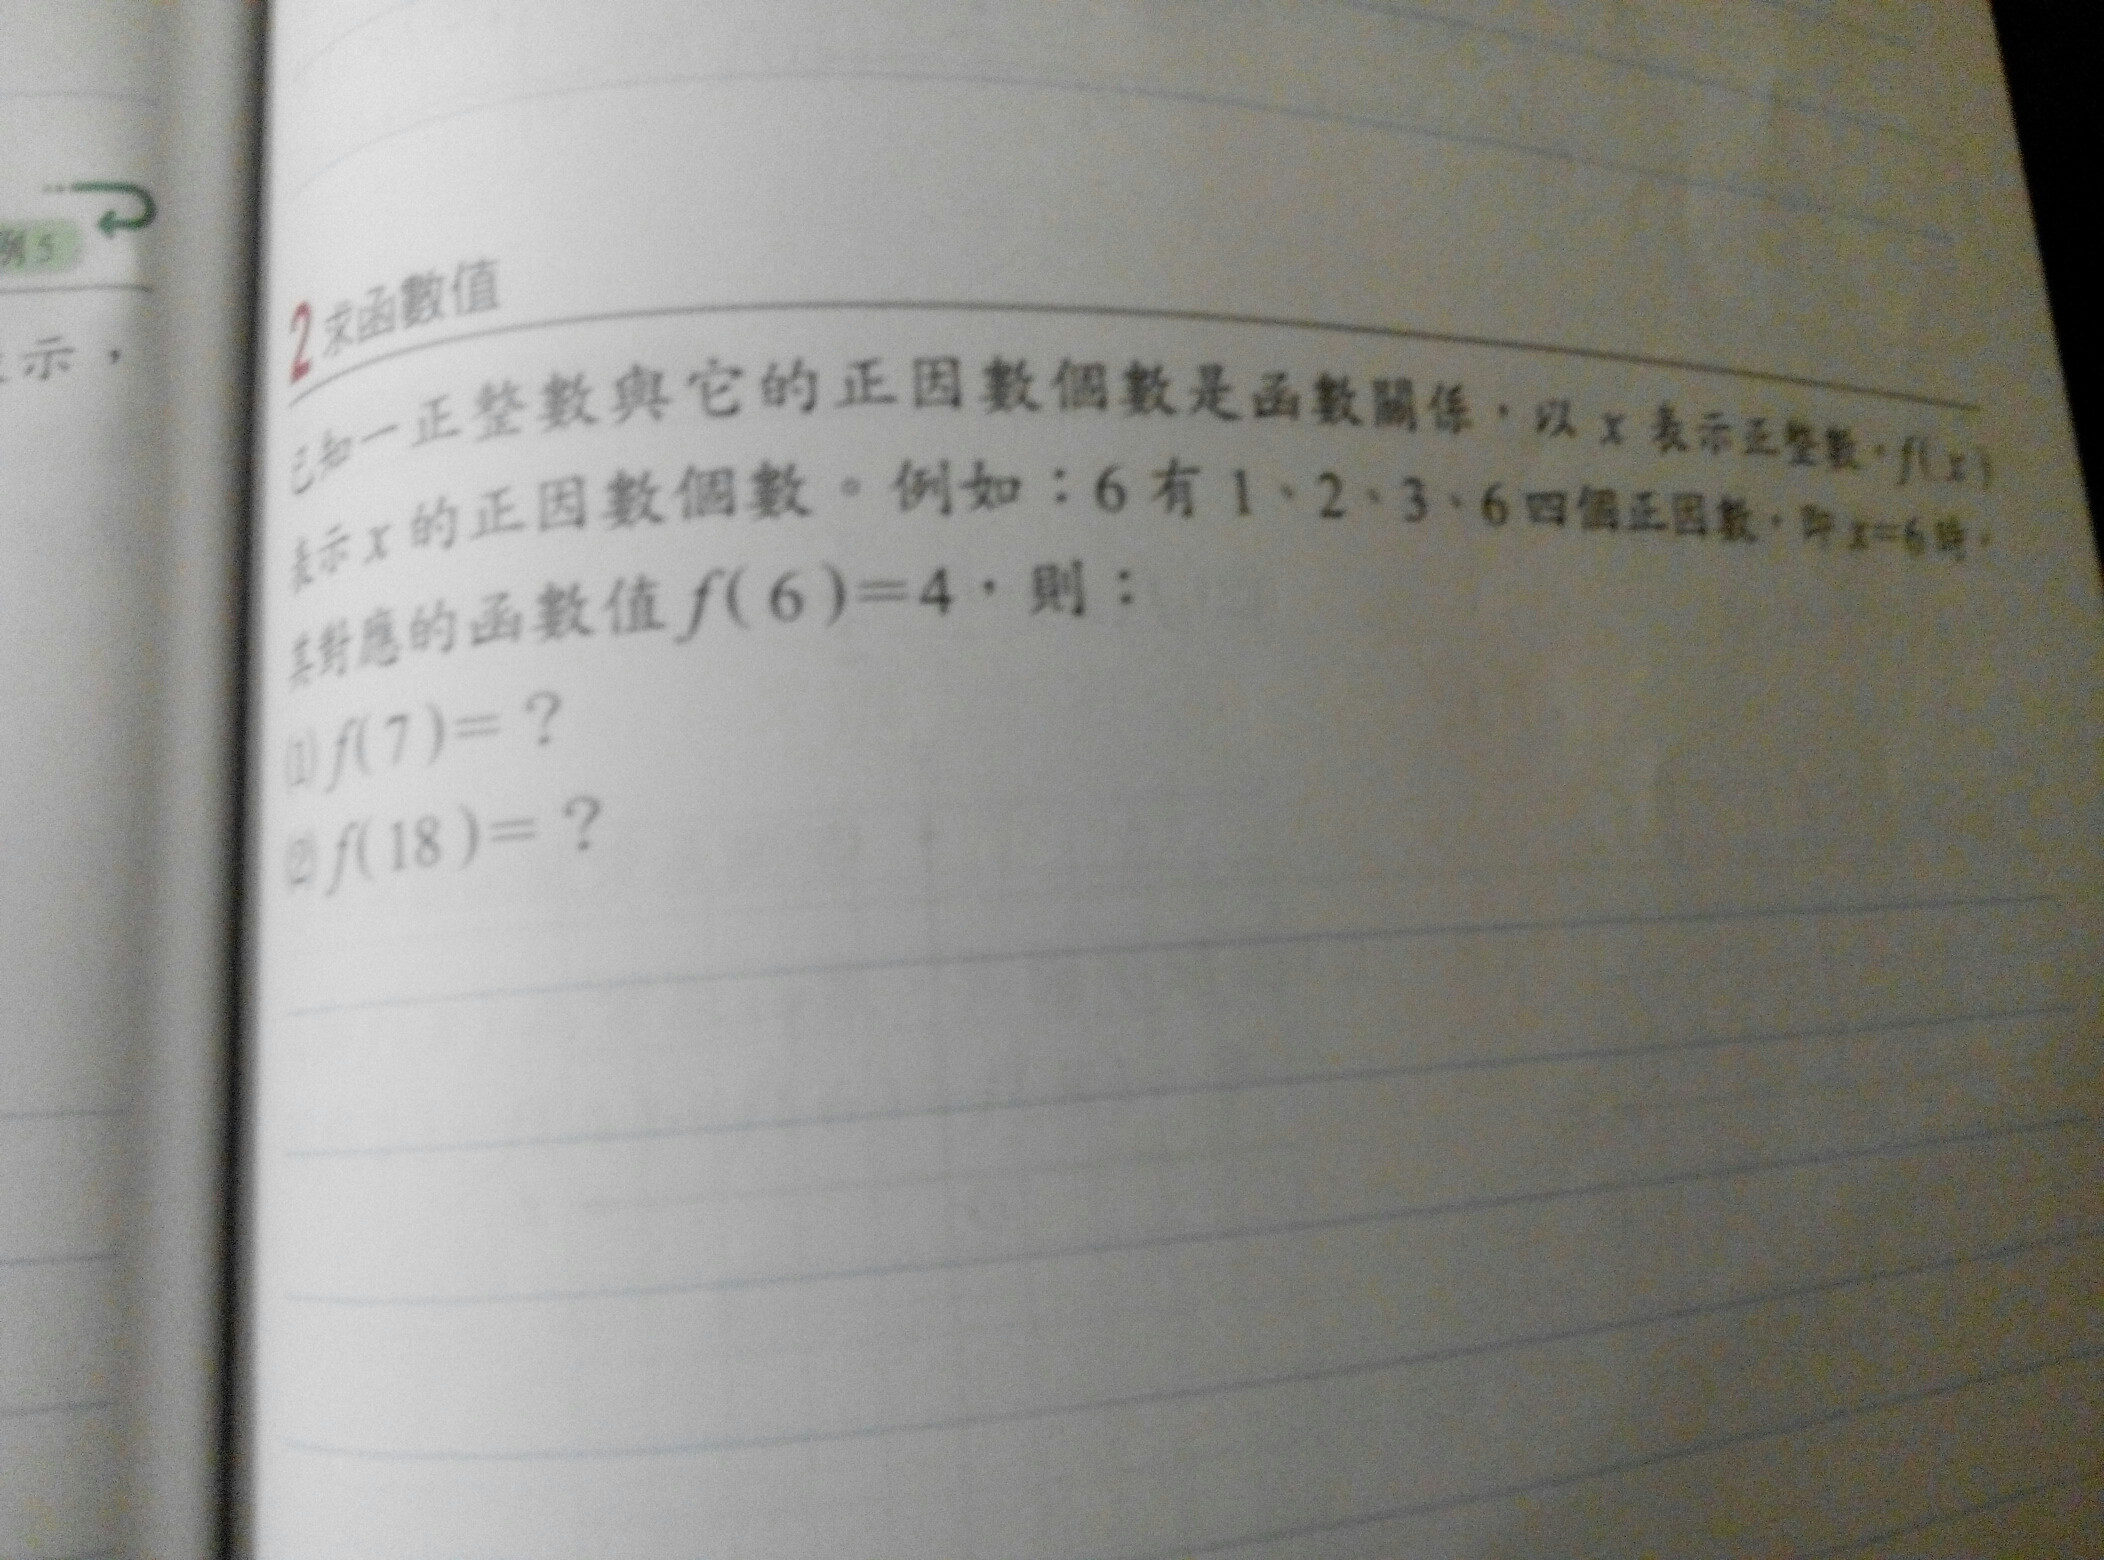 例5
示，
2 求函數值
已知一正整數與它的正因數個數是函數關係，以 x 表示正整數，f(x)
表示 x 的正因數個數。例如：6 有 1、2、3、6 四個正因數，即 x=6 時，
其對應的函數值 f(6)=4，則：
(1) f(7)=？
(2) f(18)=？